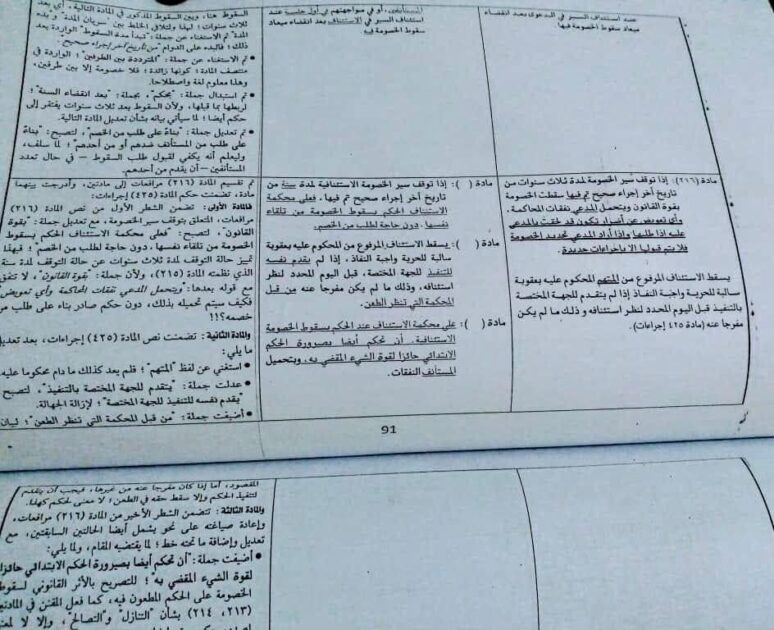 عند استئناف السير في الدعوى بعد انقضاء
ميعاد سقوط الخصومة فيها
مادة (٢١٦): إذا توقف سير الخصومة لمدة ثلاث سنوات من
تاريخ آخر إجراء صحيح تم فيها سقطت الخصومة
بقوة القانون ويتحمل المدعي نفقات المحاكمة.
وأي تعويض عن أضرار تكون قد لحقت بالمدعى
عليه إذا طلبها وإذا أراد المدعي تجديد الخصومة
فلا يتم قبولها الا باجراءات جديدة.
يسقط الاستئناف المرفوع من المتهم المحكوم عليه بعقوبة
سالبة للحرية واجبة النفاذ إذا لم يتقدم للجهة المختصة
بالتنفيذ قبل اليوم المحدد لنظر استئنافه وذلك ما لم يكن
مفرجا عنه (مادة ٤٢٥ إجراءات).
المستأنفين، أو في مواجهتهم في أول جلسة عند
استئناف السير في الاستئناف بعد انقضاء ميعاد
سقوط الخصومة فيه
مادة ( ): إذا توقف سير الخصومة الاستئنافية لمدة سنة من
تاريخ آخر إجراء صحيح تم فيها، فعلى محكمة
الاستئناف الحكم بسقوط الخصومة من تلقاء
نفسها، دون حاجة لطلب من الخصم.
مادة ( ): يسقط الاستئناف المرفوع من المحكوم عليه بعقوبة
سالبة للحرية واجبة النفاذ، إذا لم يقدم نفسه
للتنفيذ للجهة المختصة، قبل اليوم المحدد لنظر
استئنافه، وذلك ما لم يكن مفرجا عنه من قبل
المحكمة التي تنظر الطعن.
مادة ( ): على محكمة الاستئناف عند الحكم بسقوط الخصومة
الاستئنافية، أن تحكم أيضا بصيرورة الحكم
الابتدائي حائزا لقوة الشيء المقضي به، ويتحمل
المستأنف النفقات.
السقوط هنا، وبين السقوط المذكور في المادة التالية، أي بعد
ثلاث سنوات؛ لهذا ولتلافي الخلط بين "سريان المدة" و"بدء
المدة" تم الاستغناء عن جملة: "تبدأ مدة السقوط" الواردة بعد
ذلك؛ فالبدء على الدوام "من تاريخ آخر إجراء صحيح".
• تم الاستغناء عن جملة: "المترددة بين الطرفين"؛ الواردة في
منتصف المادة؛ كونها زائدة؛ فلا خصومة إلا بين طرفين،
وهذا معلوم لغة واصطلاحا.
• تم استبدال جملة: "بحكم"، بجملة: "بعد انقضاء السنة"؛
لربطها بما قبلها، ولأن السقوط بعد ثلاث سنوات يفتقر إلى
حكم أيضا؛ لما سيأتي بيانه بشأن تعديل المادة التالية.
• تم تعديل جملة: "بناءً على طلب من الخصم"، لتصبح: "بناءً
على طلب من المستأنف ضدهم أو من أحدهم"؛ لما سلف،
وليعلم أنه يكفي لقبول طلب السقوط – في حال تعدد
المستأنفين – أن يقدم من أحدهم.
تم تقسيم المادة (٢١٦) مرافعات إلى مادتين، وأدرجت بينهما
مادة، تضمنت حكم المادة (٤٢٥) إجراءات:
فالمادة الأولى: تضمن الشطر الأول من نص المادة (٢١٦)
مرافعات، المتعلق بتوقف سير الخصومة، مع تعديل جملة: "بقوة
القانون"، لتصبح: "فعلى محكمة الاستئناف الحكم بسقوط
الخصومة من تلقاء نفسها، دون حاجة لطلب من الخصم"؛ فبهذا
تميز حالة التوقف لمدة ثلاث سنوات عن حالة التوقف لمدة سنة
الذي نظمته المادة (٢١٥)، ولأن جملة: "بقوة القانون"، لا تتفق
مع قوله بعدها: "ويتحمل المدعي نفقات المحاكمة وأي تعويض"
فكيف سيتم تحميله بذلك، دون حكم صادر بناء على طلب من
خصمه؟!!
والمادة الثانية: تضمنت نص المادة (٤٢٥) إجراءات، بعد تعديل
ما يلي:
• استغني عن لفظ "المتهم"؛ فلم يعد كذلك ما دام محكوما عليه
• عدلت جملة: "يتقدم للجهة المختصة بالتنفيذ"، لتصبح
"يقدم نفسه للتنفيذ للجهة المختصة"؛ لإزالة الجهالة.
• أضيفت جملة: "من قبل المحكمة التي تنظر الطعن"؛ لبيان
91
المقصود، أما إذا كان مفرجا عنه من غيرها، فيجب أن يتقدم
لتنفيذ الحكم وإلا سقط حقه في الطعن؛ لا معنى لحكم كهذا.
والمادة الثالثة: تتضمن الشطر الأخير من المادة (٢١٦) مرافعات،
وإعادة صياغته على نحو يشمل أيضا الحالتين السابقتين، مع
تعديل وإضافة ما تحته خط؛ لما يقتضيه المقام، ولما يلي:
• أضيفت جملة: "أن تحكم أيضا بصيرورة الحكم الابتدائي حائزا
لقوة الشيء المقضي به"؛ للتصريح بالأثر القانوني لسقوط
الخصومة على الحكم المطعون فيه، كما فعل المقنن في المادتين
(٢١٣، ٢١٤) بشأن "التنازل" و"التصالح"، وإلا لا لمعنى